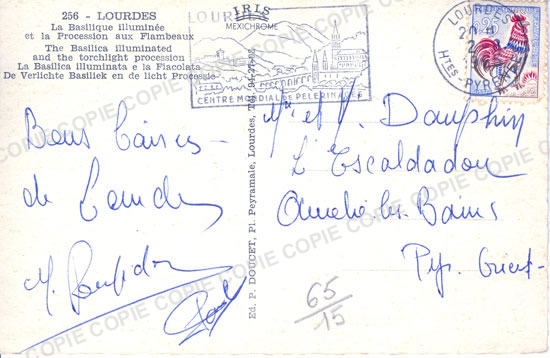 256 - LOURDES
La Basilique illuminée
et la Procession aux Flambeaux
The Basilica illuminated
and the torchlight procession
La Basilica illuminata e la Fiacolata
De Verlichte Basiliek en de licht Processie
IRIS
MEXICHROME
LOURDES
CENTRE MONDIAL DE PELERINAGE
LOURDES
HTES-PYRENEES
Ed. P. DOUCET, Pl. Peyramale, Lourdes, Tél. 94-27-
Bons baisers
de Lourdes
Mr et Dauphin
L'Escaldadou
Amélie les Bains
Pyr. Orient
65
15
COPIE COPIE COPIE COPIE